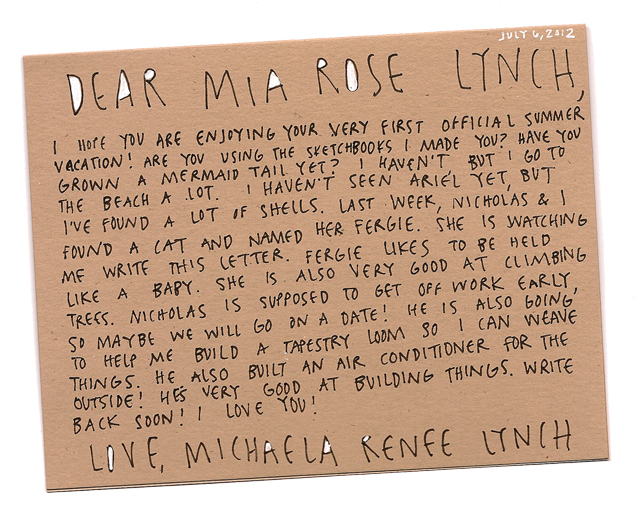 JULY 6, 2012
DEAR MIA ROSE LYNCH,
I HOPE YOU ARE ENJOYING YOUR VERY FIRST OFFICIAL SUMMER
VACATION! ARE YOU USING THE SKETCHBOOKS I MADE YOU? HAVE YOU
GROWN A MERMAID TAIL YET? I HAVEN'T BUT I GO TO
THE BEACH A LOT. I HAVEN'T SEEN ARIEL YET, BUT
I'VE FOUND A LOT OF SHELLS. LAST WEEK, NICHOLAS & I
FOUND A CAT AND NAMED HER FERGIE. SHE IS WATCHING
ME WRITE THIS LETTER. FERGIE LIKES TO BE HELD
LIKE A BABY. SHE IS ALSO VERY GOOD AT CLIMBING
TREES. NICHOLAS IS SUPPOSED TO GET OFF WORK EARLY,
SO MAYBE WE WILL GO ON A DATE! HE IS ALSO GOING
TO HELP ME BUILD A TAPESTRY LOOM SO I CAN WEAVE
THINGS. HE ALSO BUILT AN AIR CONDITIONER FOR THE
OUTSIDE! HE'S VERY GOOD AT BUILDING THINGS. WRITE
BACK SOON! I LOVE YOU!
LOVE, MICHAELA RENEE LYNCH